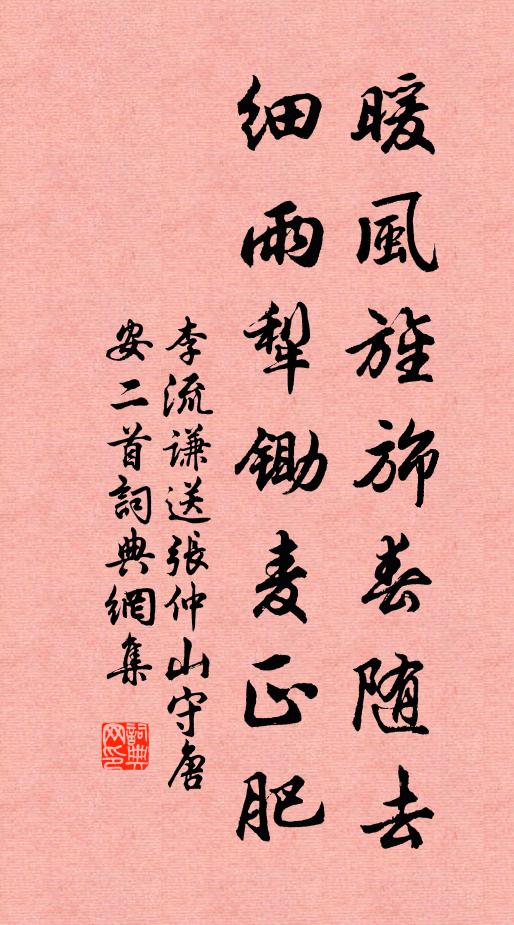 暖風旌旆春随去
細雨犁鋤麦正肥
李流謙送張仲山守唐
安二首詞典網集
詞典
网印